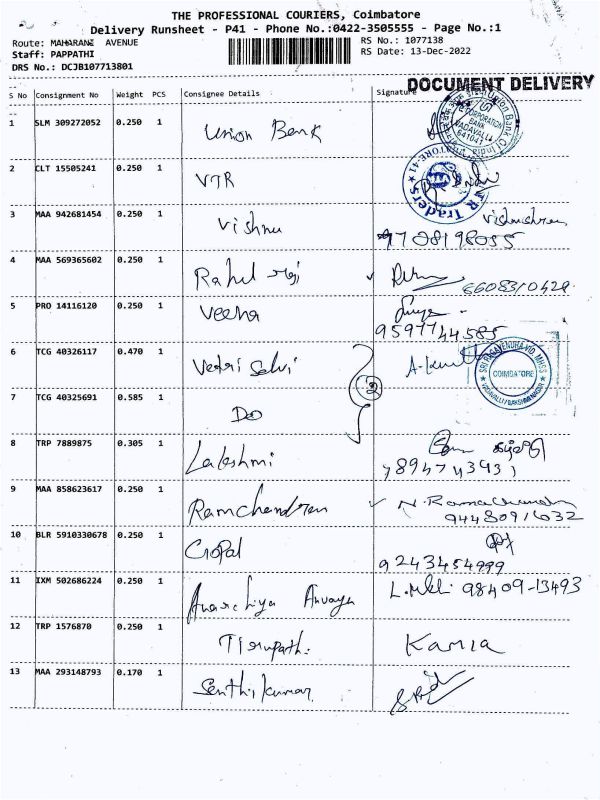 THE PROFESSIONAL COURIERS, Coimbatore
Delivery Runsheet - P41 - Phone No.:0422-3505555 - Page No.:1
Route: MAHARANI AVENUE
RS No.: 1077138
Staff: PAPPATHI
RS Date: 13-Dec-2022
DRS No.: DCJB107713801
DOCUMENT DELIVERY
S No Consignment No Weight PCS Consignee Details Signature
1 SLM 309272052 0.250 1 Union Bank
Union Bank Of India
CORPORATION
BANK
VADAVALLI
641041
2 CLT 15505241 0.250 1 VTR
TR Traders
3 MAA 942681454 0.250 1 Vishnu
9708198055
4 MAA 569365602 0.250 1 Rahul
5 PRO 14116120 0.250 1 Veena
9597744585
6 TCG 40326117 0.470 1 Vetri Selvi
SRI RAGAVENDHA VID. MHSS
COIMBATORE
7 TCG 40325691 0.585 1 DO
2
8 TRP 7889875 0.305 1 Lakshmi
7894743931
9 MAA 858623617 0.250 1 Ramchendren
N. Ramachandran
10 BLR 5910330678 0.250 1 Gopal
9243454999
11 IXM 502686224 0.250 1
98409-13493
12 TRP 1576870 0.250 1 Tirupathi
Kamla
13 MAA 293148793 0.170 1 Senthikumar